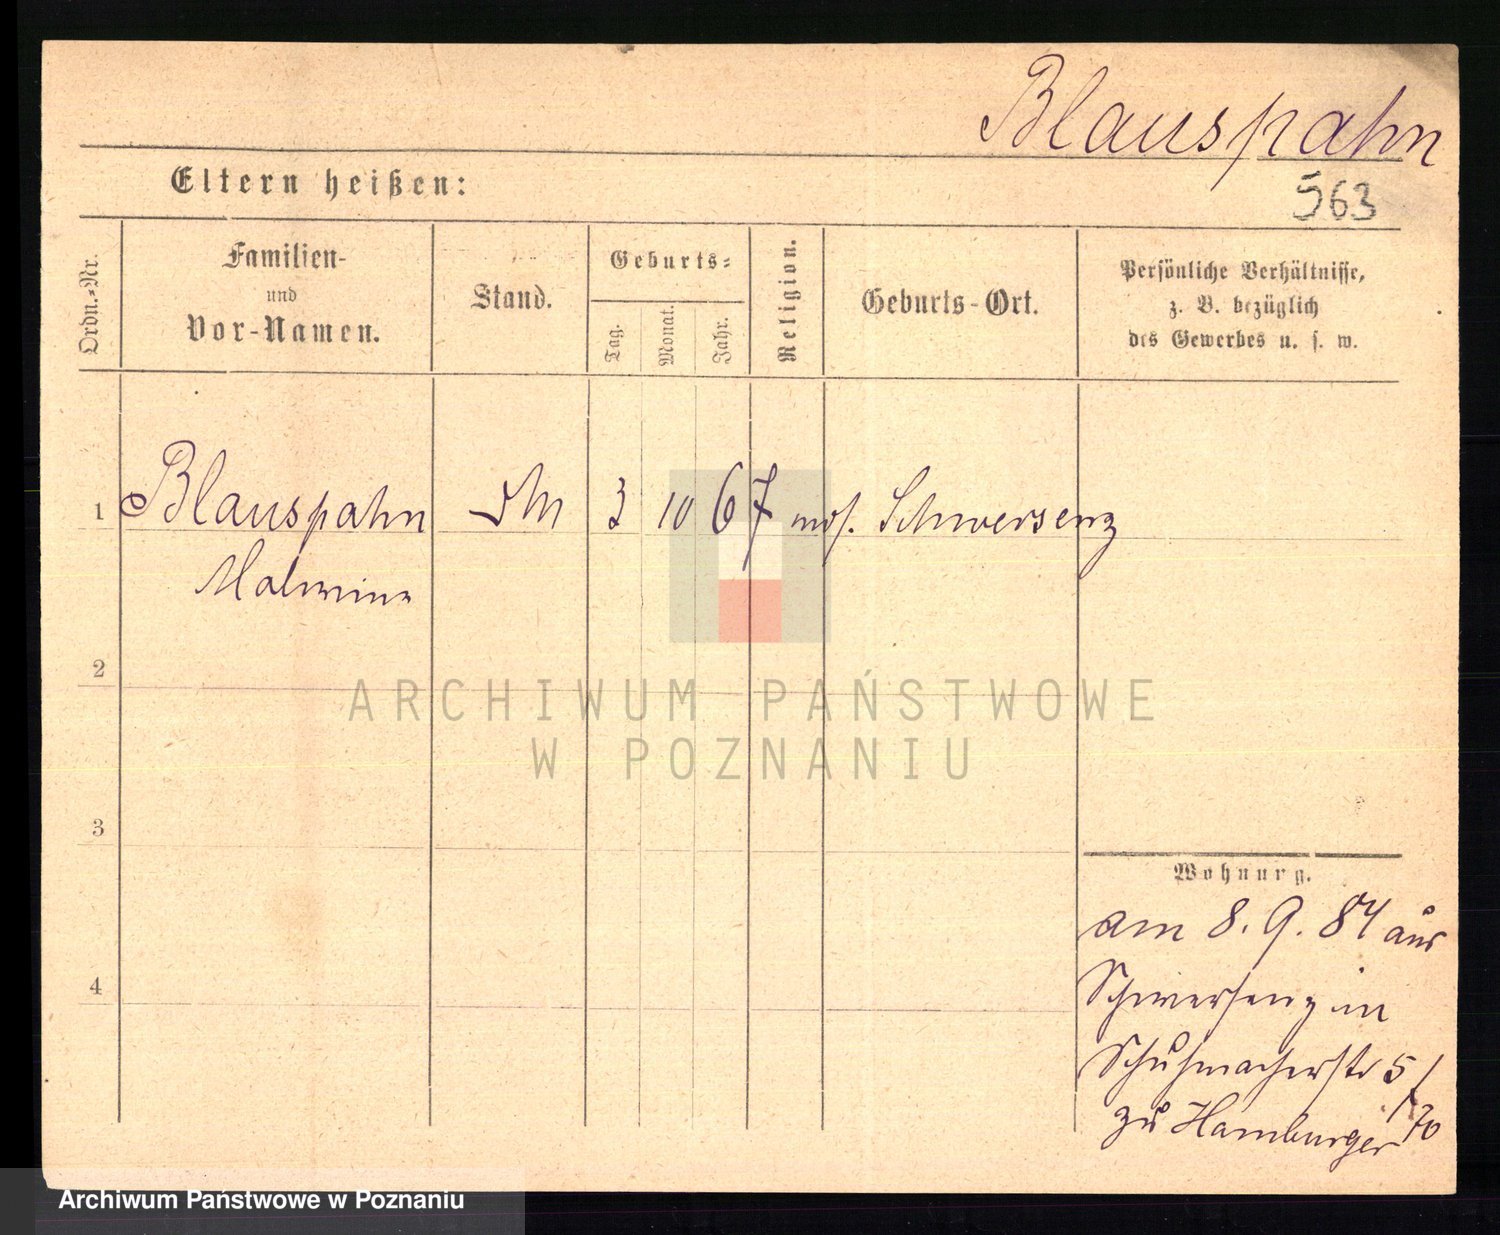 Blauspahn
Eltern heißen:
563
Ordn.-Nr.
Familien-
und
Vor-Namen.
Stand.
Geburts-
Tag.
Monat.
Jahr.
Religion.
Geburts-Ort.
Persönliche Verhältnisse,
z. B. bezüglich
des Gewerbes u. s. w.
1 Blauspahn 3 10 67 mos. Schwersenz
Malwine
2
ARCHIWUM PAŃSTWOWE
W POZNANIU
3
Wohnung.
am 8. 9. 84 aus
4
Schwersenz in
Schuhmacherstr 5/
zu Hamburger 70
Archiwum Państwowe w Poznaniu